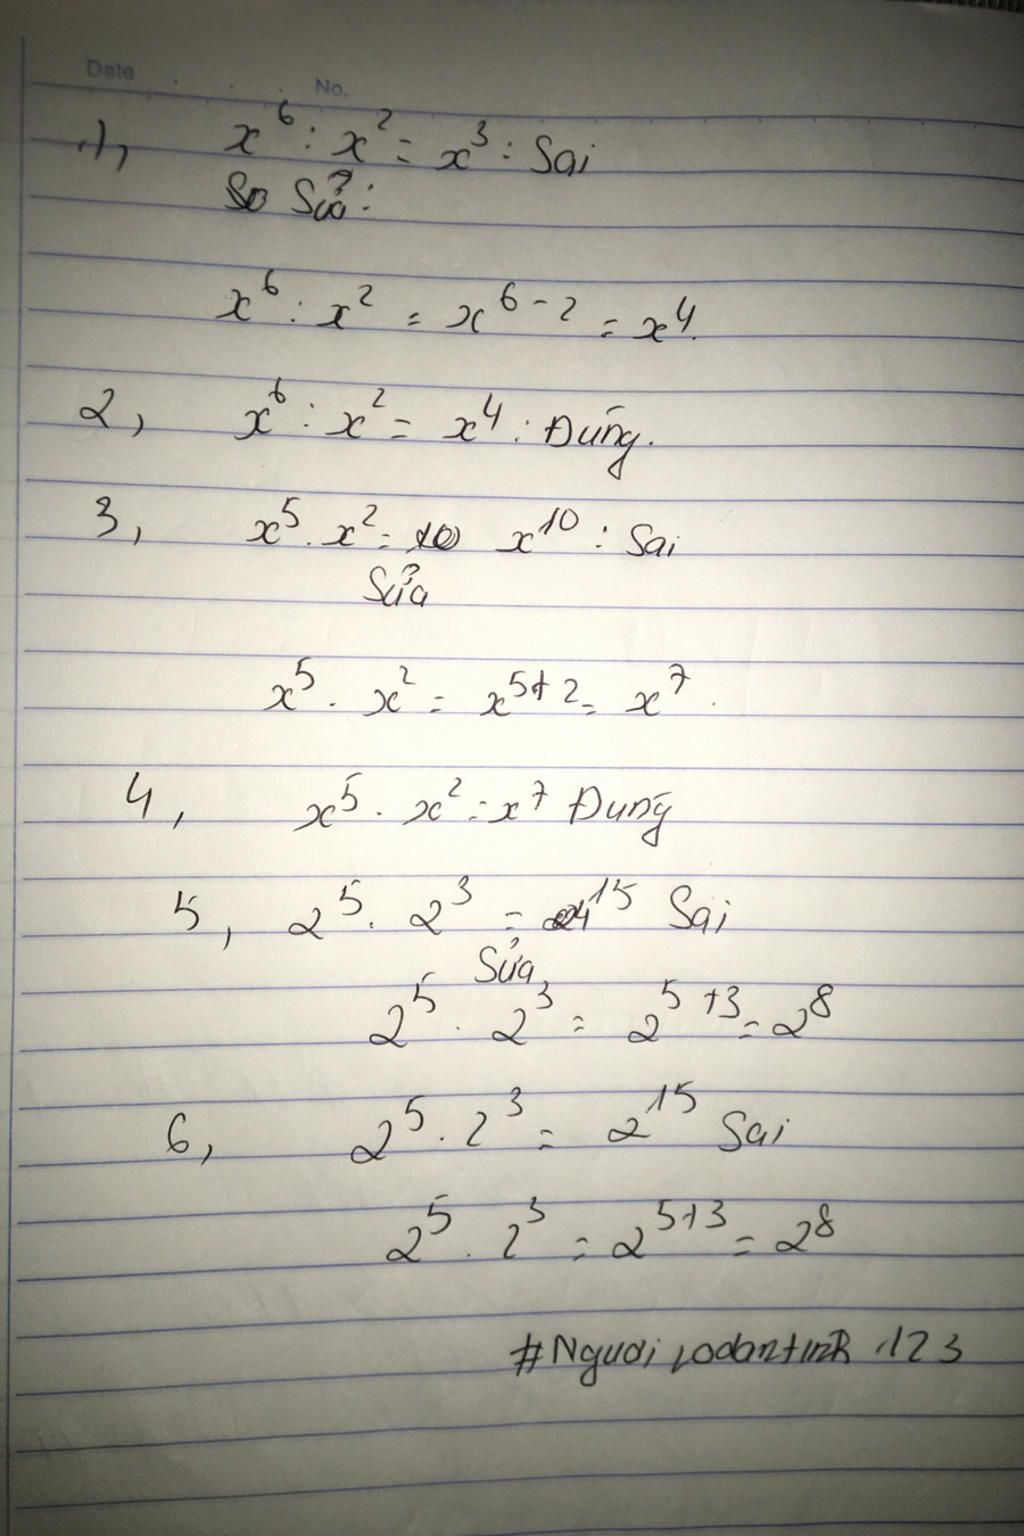 Date No.
1, x⁶ : x² = x³ : Sai
Sửa :
x⁶ : x² = x⁶⁻² = x⁴.
2, x⁶ : x² = x⁴ : Đúng.
3, x⁵ . x² = x¹⁰ : Sai
Sửa
x⁵ . x² = x⁵⁺² = x⁷.
4, x⁵ . x² = x⁷ Đúng
5, 2⁵ . 2³ = 4¹⁵ Sai
Sửa
2⁵ . 2³ = 2⁵⁺³ = 2⁸
6, 2⁵ . 2³ = 2¹⁵ Sai
2⁵ . 2³ = 2⁵⁺³ = 2⁸
#Nguoi 123